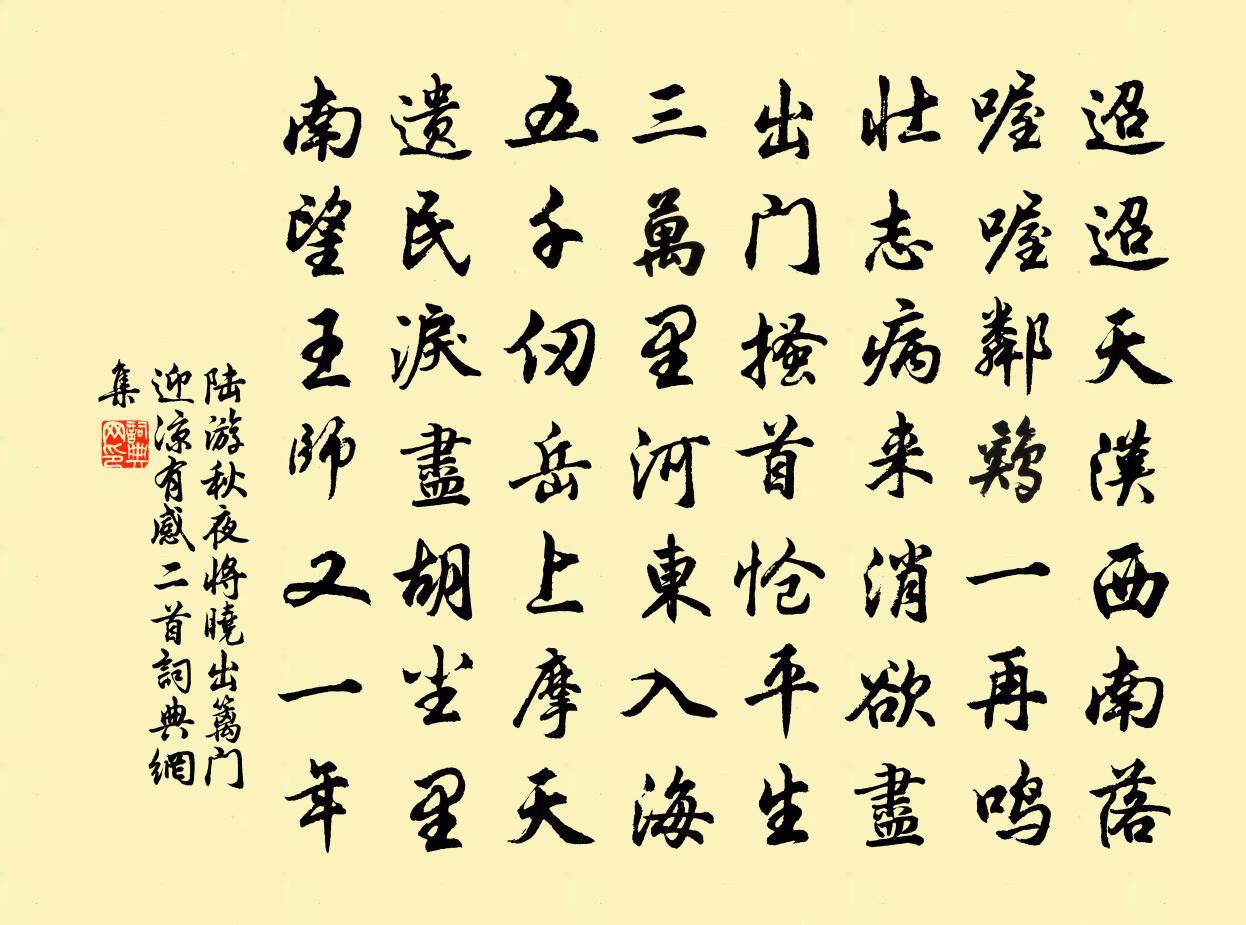 迢迢天漢西南落
喔喔鄰鷄一再鸣
壮志病来消欲盡
出门搔首愴平生
三萬里河東入海
五千仞岳上摩天
遗民淚盡胡尘里
南望王师又一年
陆游秋夜将曉出篱门
迎凉有感二首詞典網
集
詞典
网印